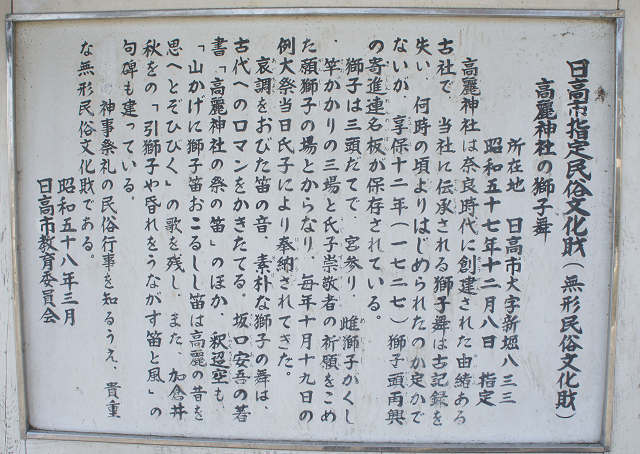 日高市指定民俗文化財(無形民俗文化財)
高麗神社の獅子舞
所在地 日高市大字新堀八三三
昭和五十七年十二月八日 指定
高麗神社は奈良時代に創建された由緒ある
古社で、当社に伝承される獅子舞は古記録を
失い、何時の頃よりはじめられたのか定かで
ないが、享保十二年(一七二七)獅子頭再興
の寄進連名板が保存されている。
獅子は三頭だてで、宮参り、雌獅子がくし
、竿かかりの三場と氏子崇敬者の祈願をこめ
た願獅子の場とからなり、毎年十月十九日の
例大祭当日氏子により奉納されてきた。
哀調をおびた笛の音、素朴な獅子の舞は、
古代へのロマンをかきたてる。坂口安吾の著
書「高麗神社の祭の笛」のほか、釈迢空も、
「山かげに獅子笛おこるしし笛は高麗の昔を
思へとぞひびく」の歌を残し、また、加倉井
秋をの「引獅子や昏れをうながす笛と風」の
句碑も建っている。
神事祭礼の民俗行事を知るうえ、貴重
な無形民俗文化財である。
昭和五十八年三月
日高市教育委員会